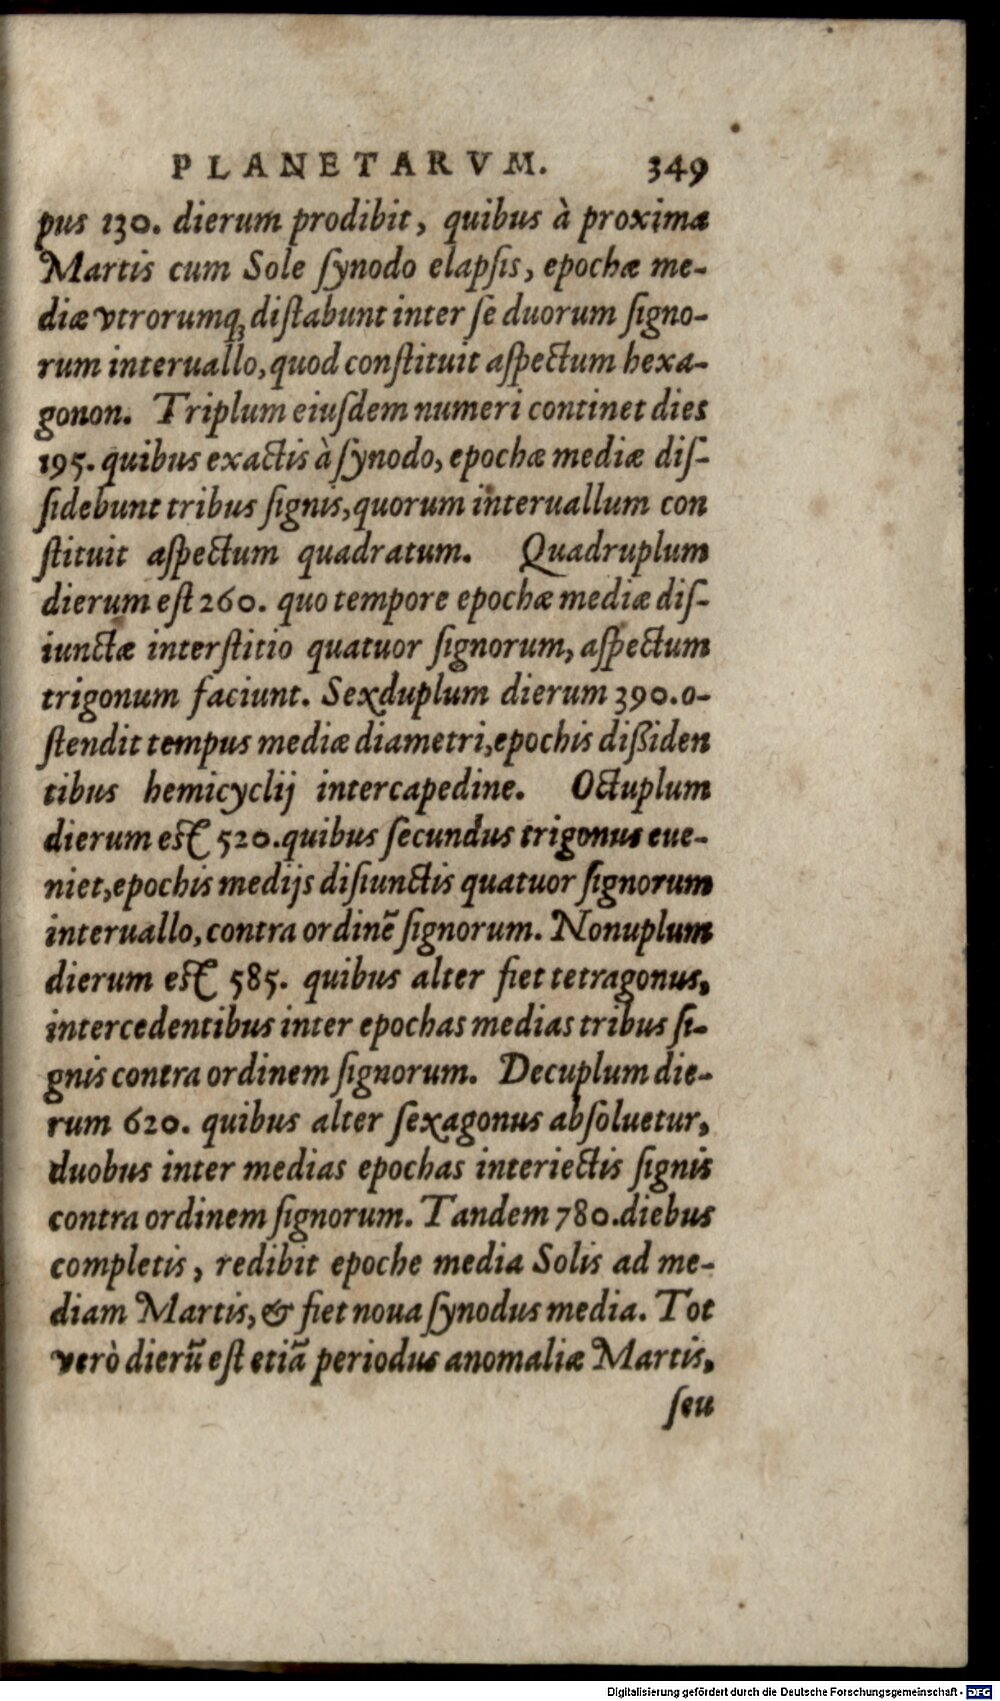 PLANETARVM. 349
pus 130. dierum prodibit, quibus à proxima
Martis cum Sole ſynodo elapſis, epochæ me-
diæ vtrorumq́; diſtabunt inter ſe duorum ſigno-
rum interuallo, quod conſtituit aſpectum hexa-
gonon. Triplum eiuſdem numeri continet dies
195. quibus exactis à ſynodo, epochæ mediæ diſ-
ſidebunt tribus ſignis, quorum interuallum con
ſtituit aſpectum quadratum. Quadruplum
dierum eſt 260. quo tempore epochæ mediæ diſ-
iunctæ interſtitio quatuor ſignorum, aſpectum
trigonum faciunt. Sexduplum dierum 390. o-
ſtendit tempus mediæ diametri, epochis dißiden
tibus hemicyclij intercapedine. Octuplum
dierum eſt 520. quibus ſecundus trigonus eue-
niet, epochis medijs diſiunctis quatuor ſignorum
interuallo, contra ordinẽ ſignorum. Nonuplum
dierum eſt 585. quibus alter fiet tetragonus,
intercedentibus inter epochas medias tribus ſi-
gnis contra ordinem ſignorum. Decuplum die-
rum 620. quibus alter ſexagonus abſoluetur,
duobus inter medias epochas interiectis ſignis
contra ordinem ſignorum. Tandem 780. diebus
completis, redibit epoche media Solis ad me-
diam Martis, & fiet noua ſynodus media. Tot
verò dierũ eſt etiã periodus anomaliæ Martis,
ſeu
Digitalisierung gefördert durch die Deutsche Forschungsgemeinschaft - DFG